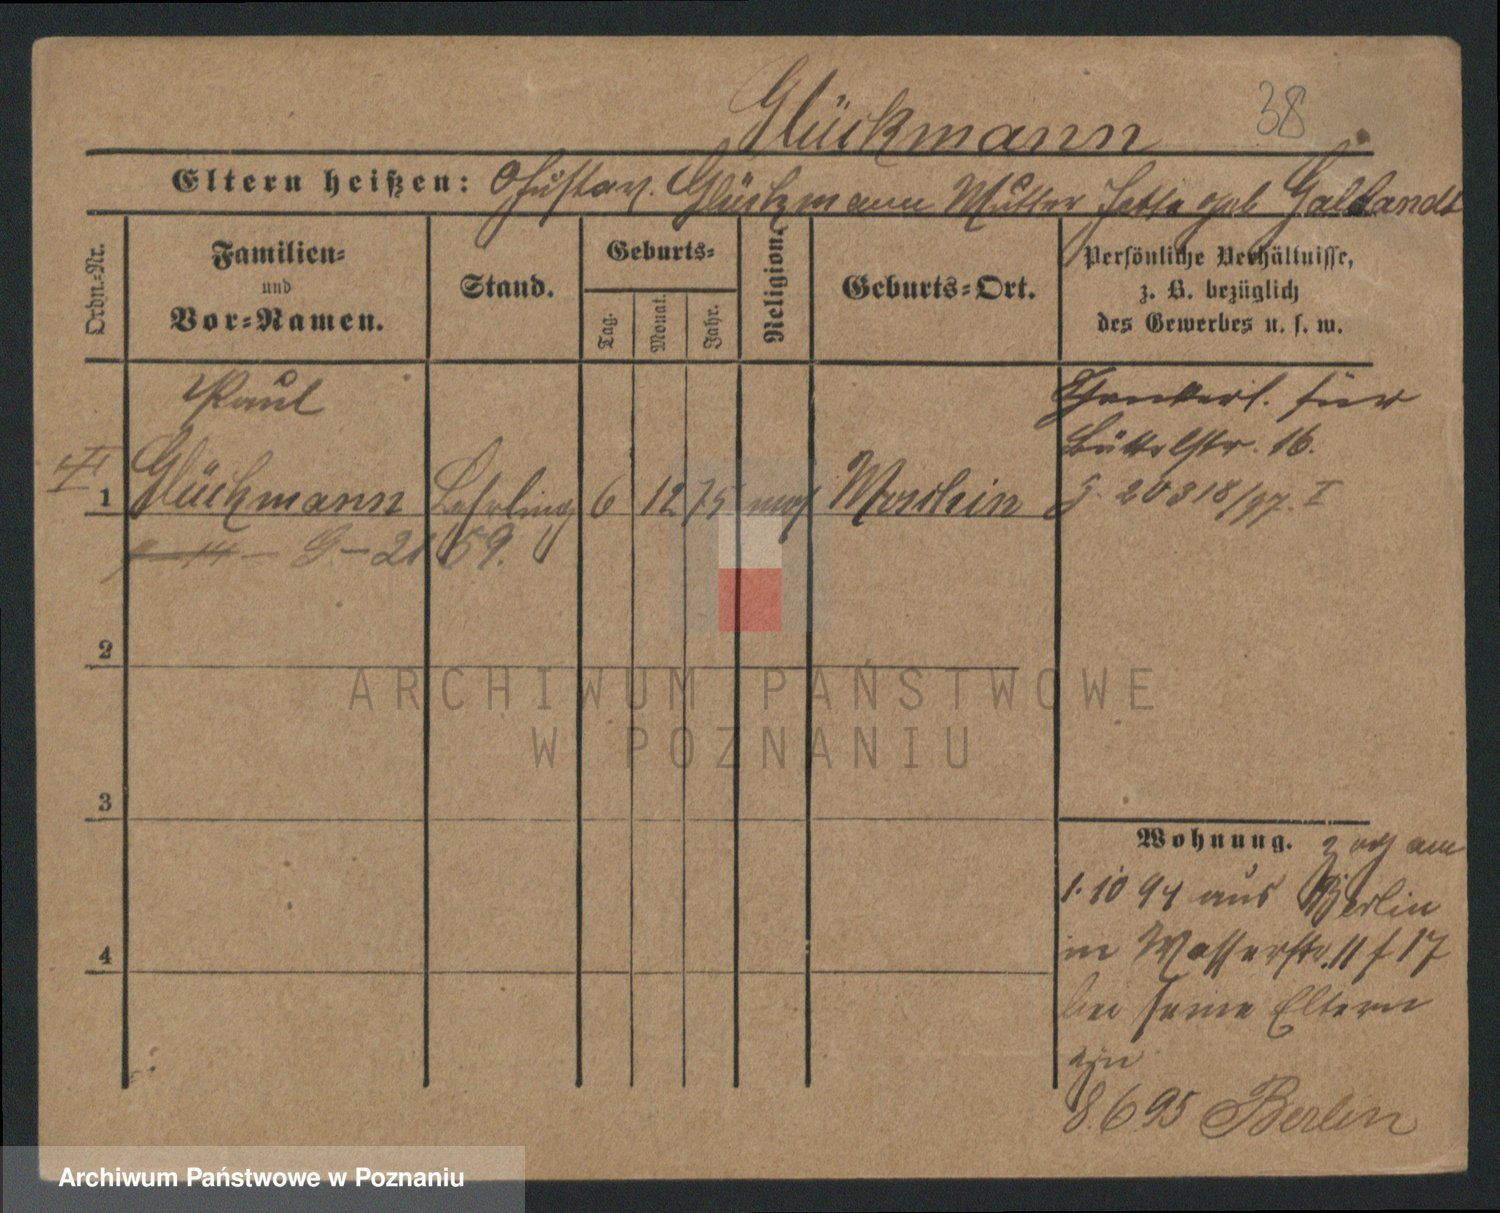 Glückmann 38
Eltern heißen: Gustav. Glückmann Mutter Jette geb Gallandt
Ordn.-Nr.
Familien-
und
Vor-Namen.
Stand.
Geburts-
Tag.
Monat.
Jahr.
Religion.
Geburts-Ort.
Persönliche Verhältnisse,
z. B. bezüglich
des Gewerbes u. s. w.
Paul
1 Glückmann Lehrling 6 12 75 mos
G - 2159.
für
Büttelstr. 16.
20318/97. I
2
3
4
Wohnung. zog am
1. 10 94 aus Berlin
in Wasserstr. 11 / 17
bei seine Eltern
ein
8.6.95 Berlin
ARCHIWUM PAŃSTWOWE
W POZNANIU
Archiwum Państwowe w Poznaniu